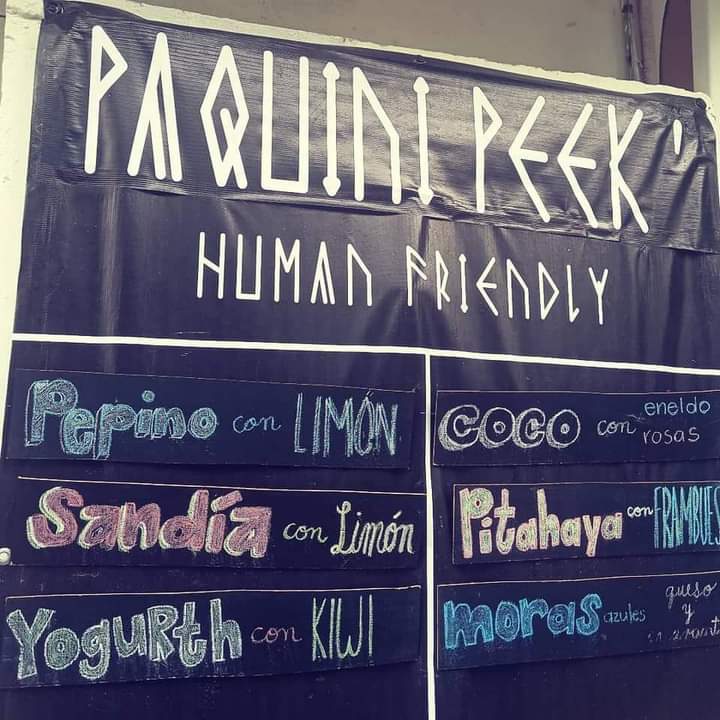 PAQUINI PEEK'
HUMAN FRIENDLY
Pepino con LIMÓN
Sandía con Limón
YoguRth con KIWI
COCO con eneldo
rosas
Pitahaya con FRAMBUES
moras azules queso
y